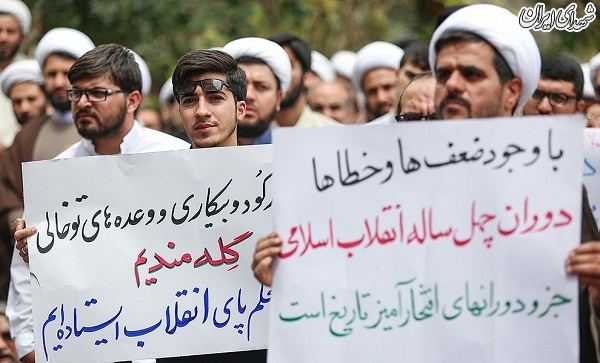 شهدای ایران
رکود و بیکاری و وعده های توخالی
گله مندیم
پای انقلاب ایستاده ایم
با وجود ضعف ها و خطاها
دوران چهل ساله انقلاب اسلامی
جزو دورانهای افتخارآمیز تاریخ است